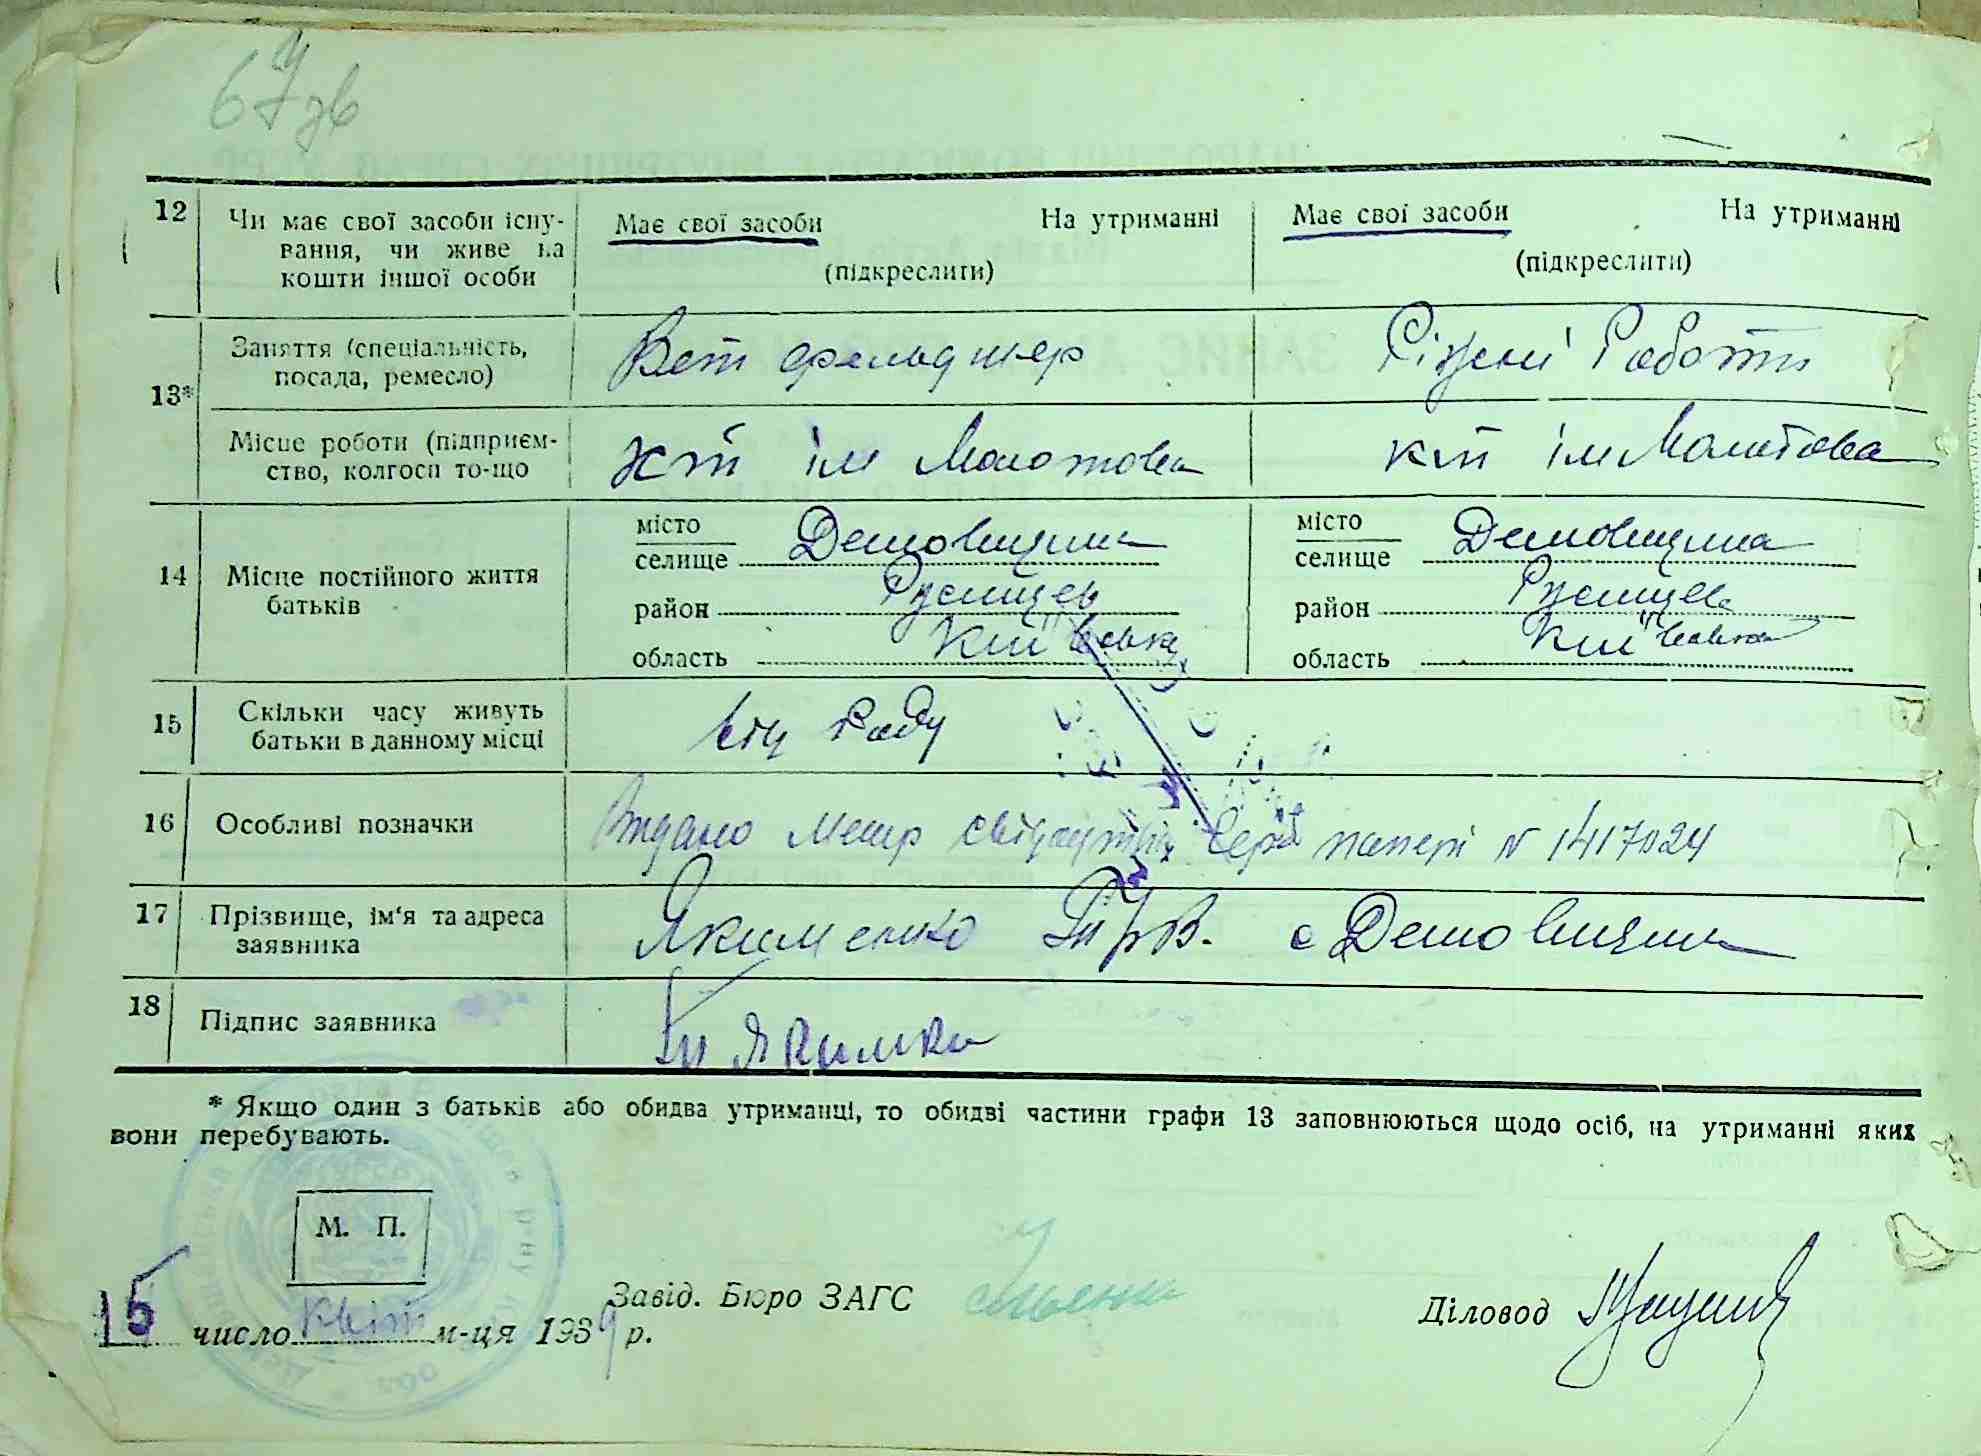 67 зв
12 Чи має свої засоби існу- Має свої засоби На утриманні Має свої засоби На утриманні
вання, чи живе на (підкреслити) (підкреслити)
кошти іншої особи
13* Заняття (спеціальність, Вет фельдшер Ріжні Роботи
посада, ремесло)
Місце роботи (підприєм- кт ім Молотова кт ім Молотова
ство, колгосп то-що
14 Місце постійного життя місто місто
батьків селище Демовщина селище Демовщина
район район
область Київська область Київська
15 Скільки часу живуть
батьки в данному місці
16 Особливі позначки Видано папері N 1417024
17 Прізвище, ім'я та адреса Якименко с Демовщина
заявника
18 Підпис заявника
* Якщо один з батьків або обидва утриманці, то обидві частини графи 13 заповнюються щодо осіб, на утриманні яких
вони перебувають.
М. П.
15 число Квітн м-ця 1939 р. Завід. Бюро ЗАГС Діловод